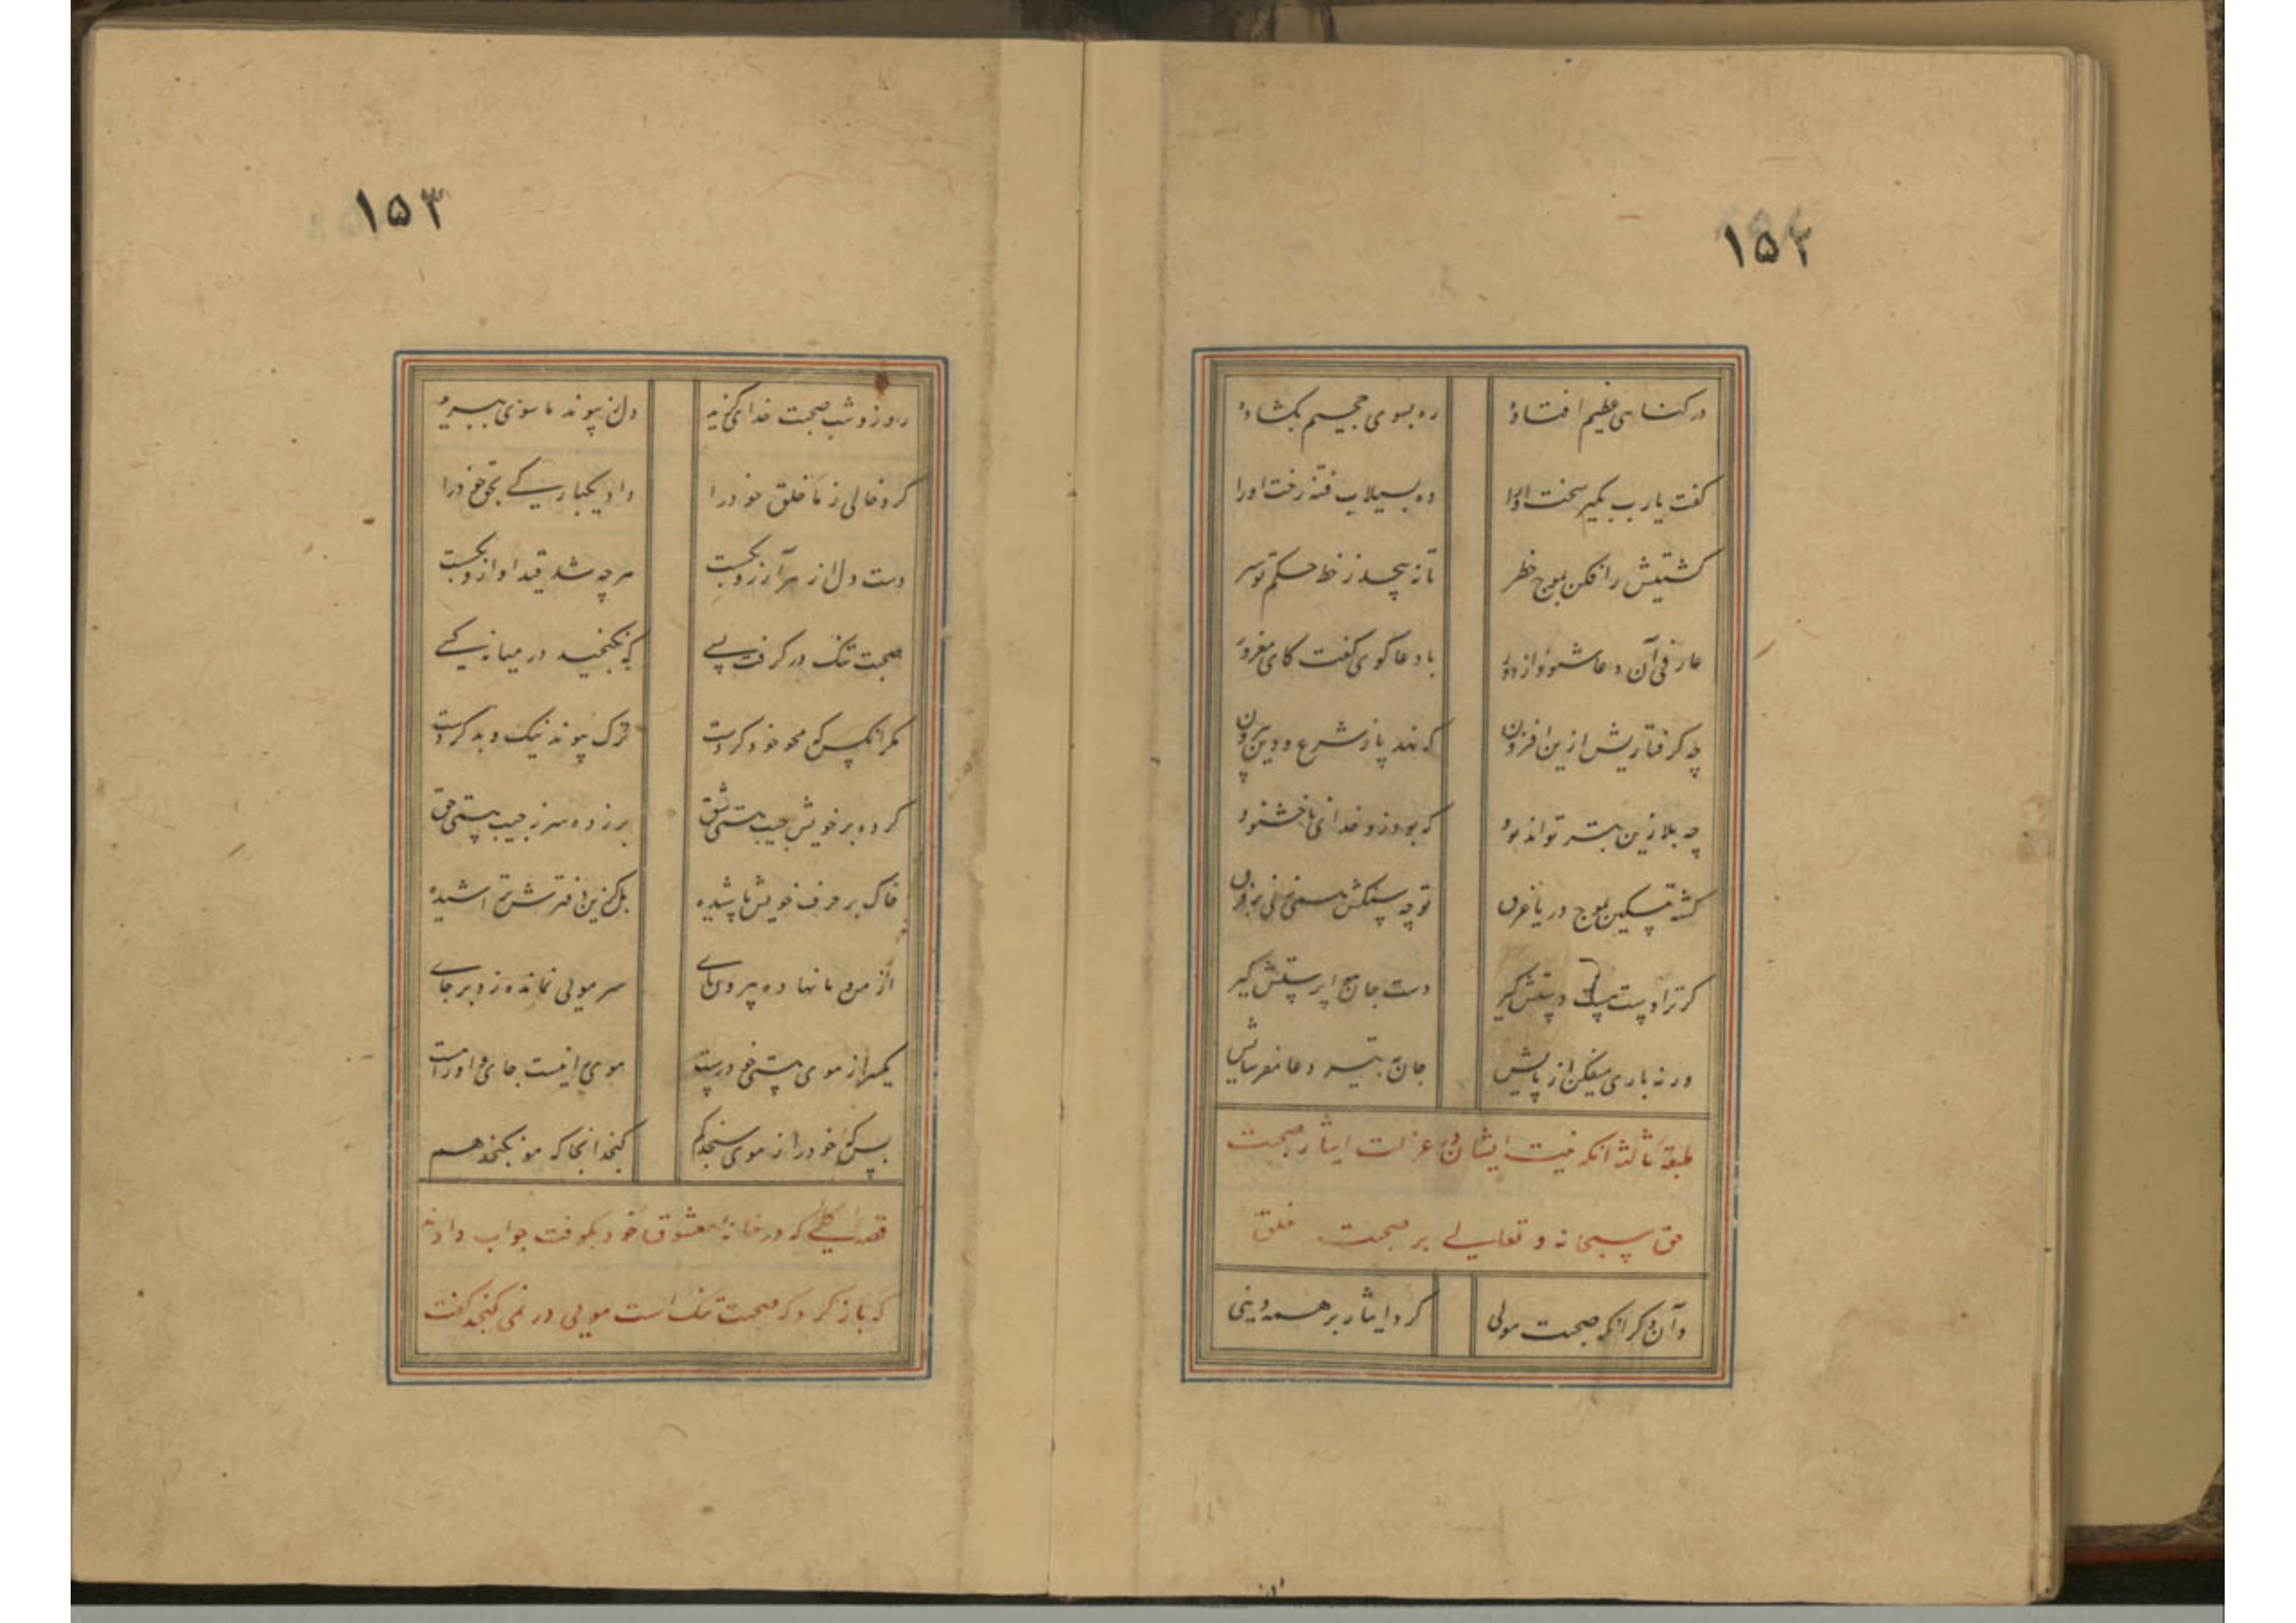 ۱۵۲
در کناهی عظیم افتاده ره بسوی جحیم بکشاده
کفت یارب بکیر سخت او را ده بسیلاب فتنه رخت او را
کشتیش را فکن بموج خطر تا نپیچد ز خط حکم تو سر
عارفی آن دعا شنود از دور با دعا کوی کفت کای مغرور
چه کرفتاریش ازین افزون که نهد پا ز شرع و دین بیرون
چه بلا زین بتر تواند بود که بود زو خدای ناخشنود
کشته مسکین بموج دریا غرق تو چه سنکش همی زنی بر فرق
کر ترا دست هست دستش کیر دست جان هم ترا پرستش کیر
ور نه باری میفکن از پایش جان بتیر دعا مفرسایش
طبقه ثالثه انکه نیت ایشان در عزلت ایثار صحبت
حق سبحانه و تعالی بر صحبت خلق
وآن دکر انکه صحبت مولی کرد ایثار بر همه دنیی
۱۵۳
روز و شب صحبت خدای کزید دل ز پیوند ما سوی ببرید
کرد خالی ز ما خلق خود را داد یکبارکی بحق خود را
دست دل از هر آرزو بکسست هر چه شد قید او ازو بکسست
صحبت تنک در کرفت پسی که نکنجید در میانه کسی
مکر انکس که محو خود کردست ترک پیوند نیک و بد کردست
کرده بر خویش جیب هستی شق بر زده سر ز جیب هستی حق
خاک بر حرف خویش پاشیده بلکزین دفترش تراشیده
از من و ما نهاده بیرون پای سر مویی نمانده زو بر جای
کمتر از موی هستی خود رست موی را نیست جای او راست
بس که خود را ز موی سنجد کم کنجد انجا که مو نکنجد هم
قصه آن کسی که در خانه معشوق خود بکوفت جواب دادند
که باز کرد که صحبت تنک است مویی در نمی کنجد کفت